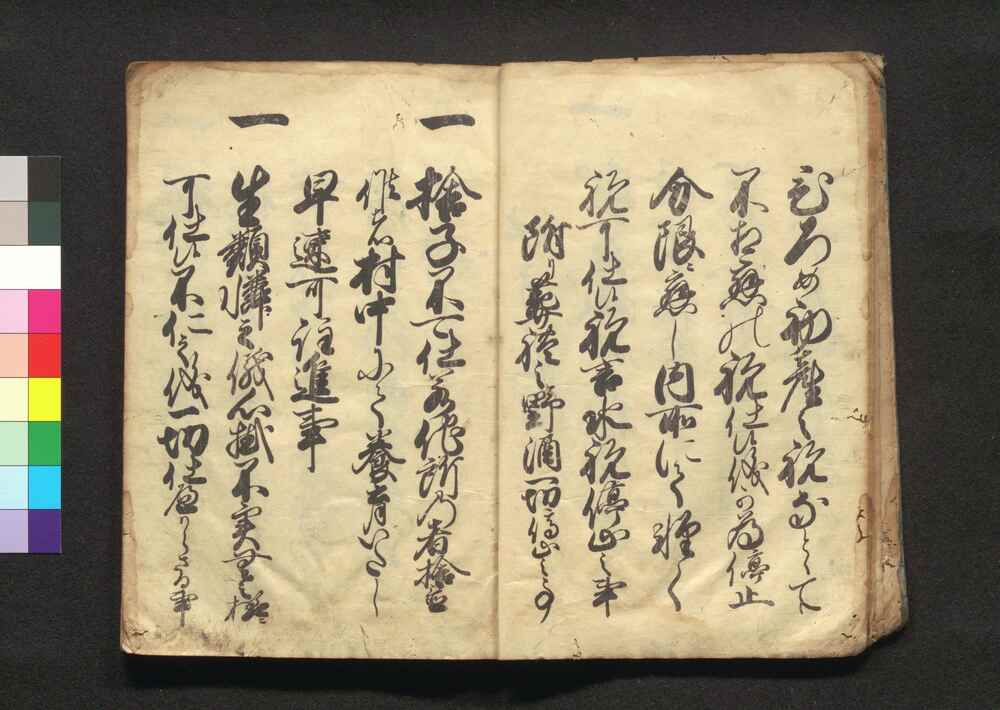 ひろめ初産之祝なとゝて
不相応の祝仕候儀可為停止
分限ニ応し内所にて軽く
祝可仕候祝言水祝停止之事
附り葬礼之野酒一切停止之事
一 捨子不可仕若他所の者捨置
候ハヽ村中ニて養育いたし
早速可注進事
一 生類憐之儀心掛不実無之様ニ
可仕候不仁之儀一切仕間敷事